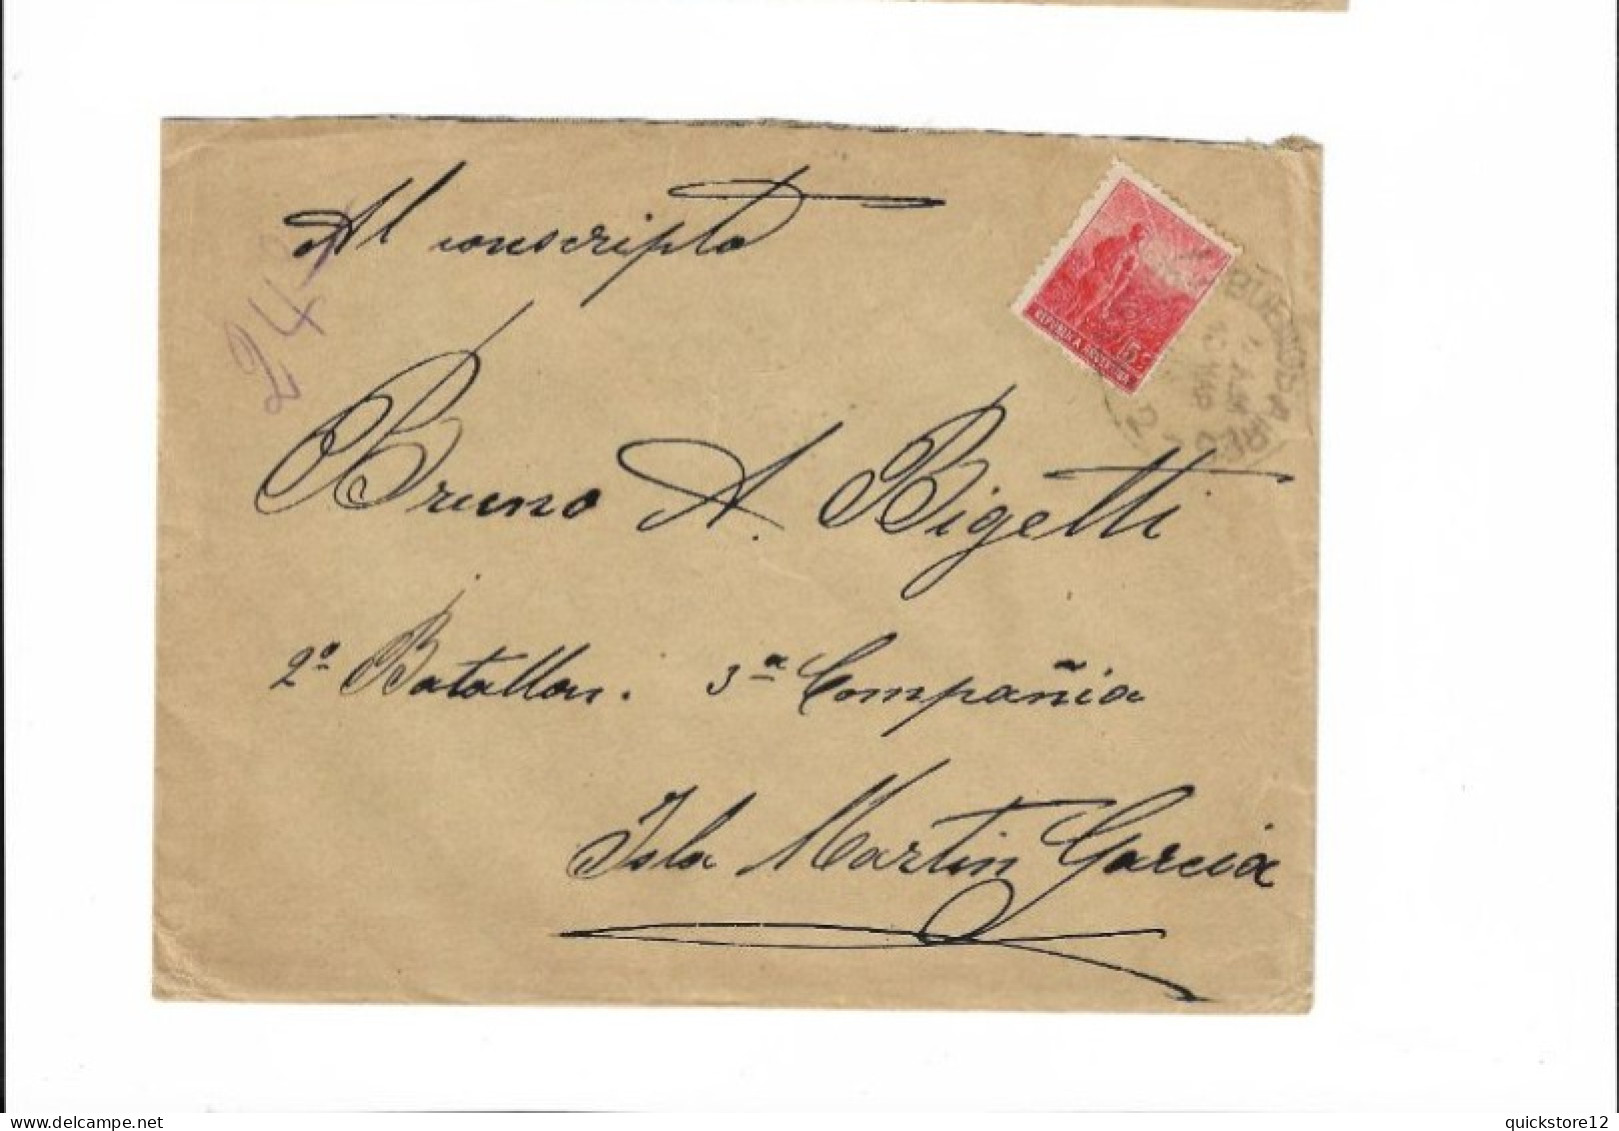 Al conscripto
24
Bruno A. Bigetti
2º Batallon. 3ª Compañia
Isla Martin Garcia
REPUBLICA ARGENTINA
5c
BUENOS AIRES
quickstore12